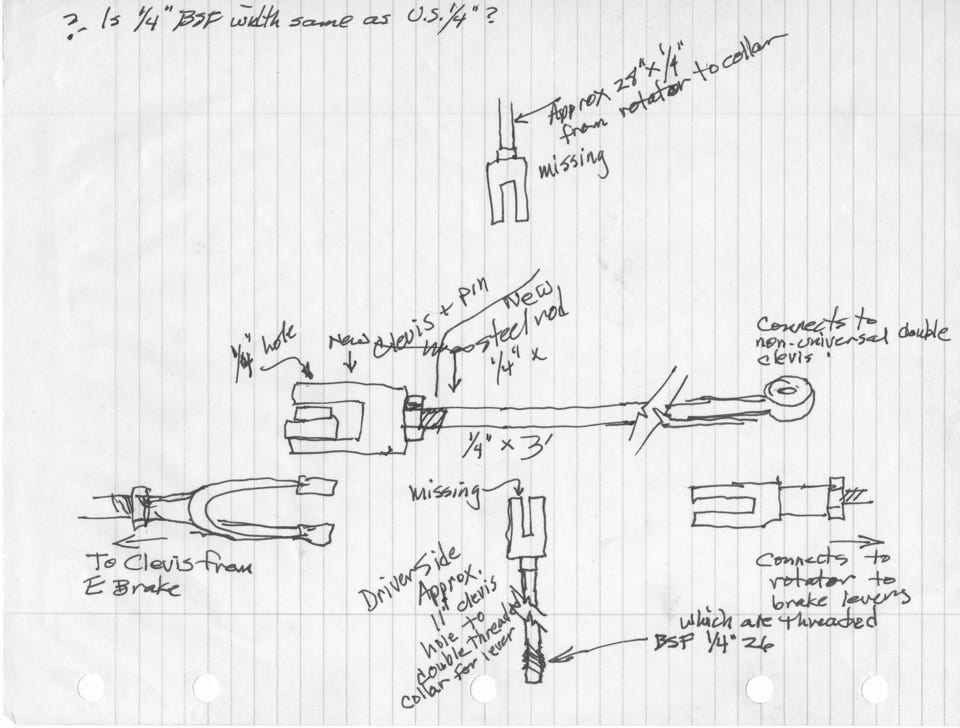 ? Is 1/4" BSF width same as U.S. 1/4"?
Approx 28" x 1/4"
from rotator to collar
missing
1/4" hole
New Clevis + pin
New
steel rod
1/4" x
Connects to
non-universal double
clevis.
1/4" x 3'
missing
To Clevis from
E Brake
Driver Side
Approx.
11" clevis
hole to
double threaded
collar for lever
Connects to
rotator to
brake levers
which are threaded
BSF 1/4" 26